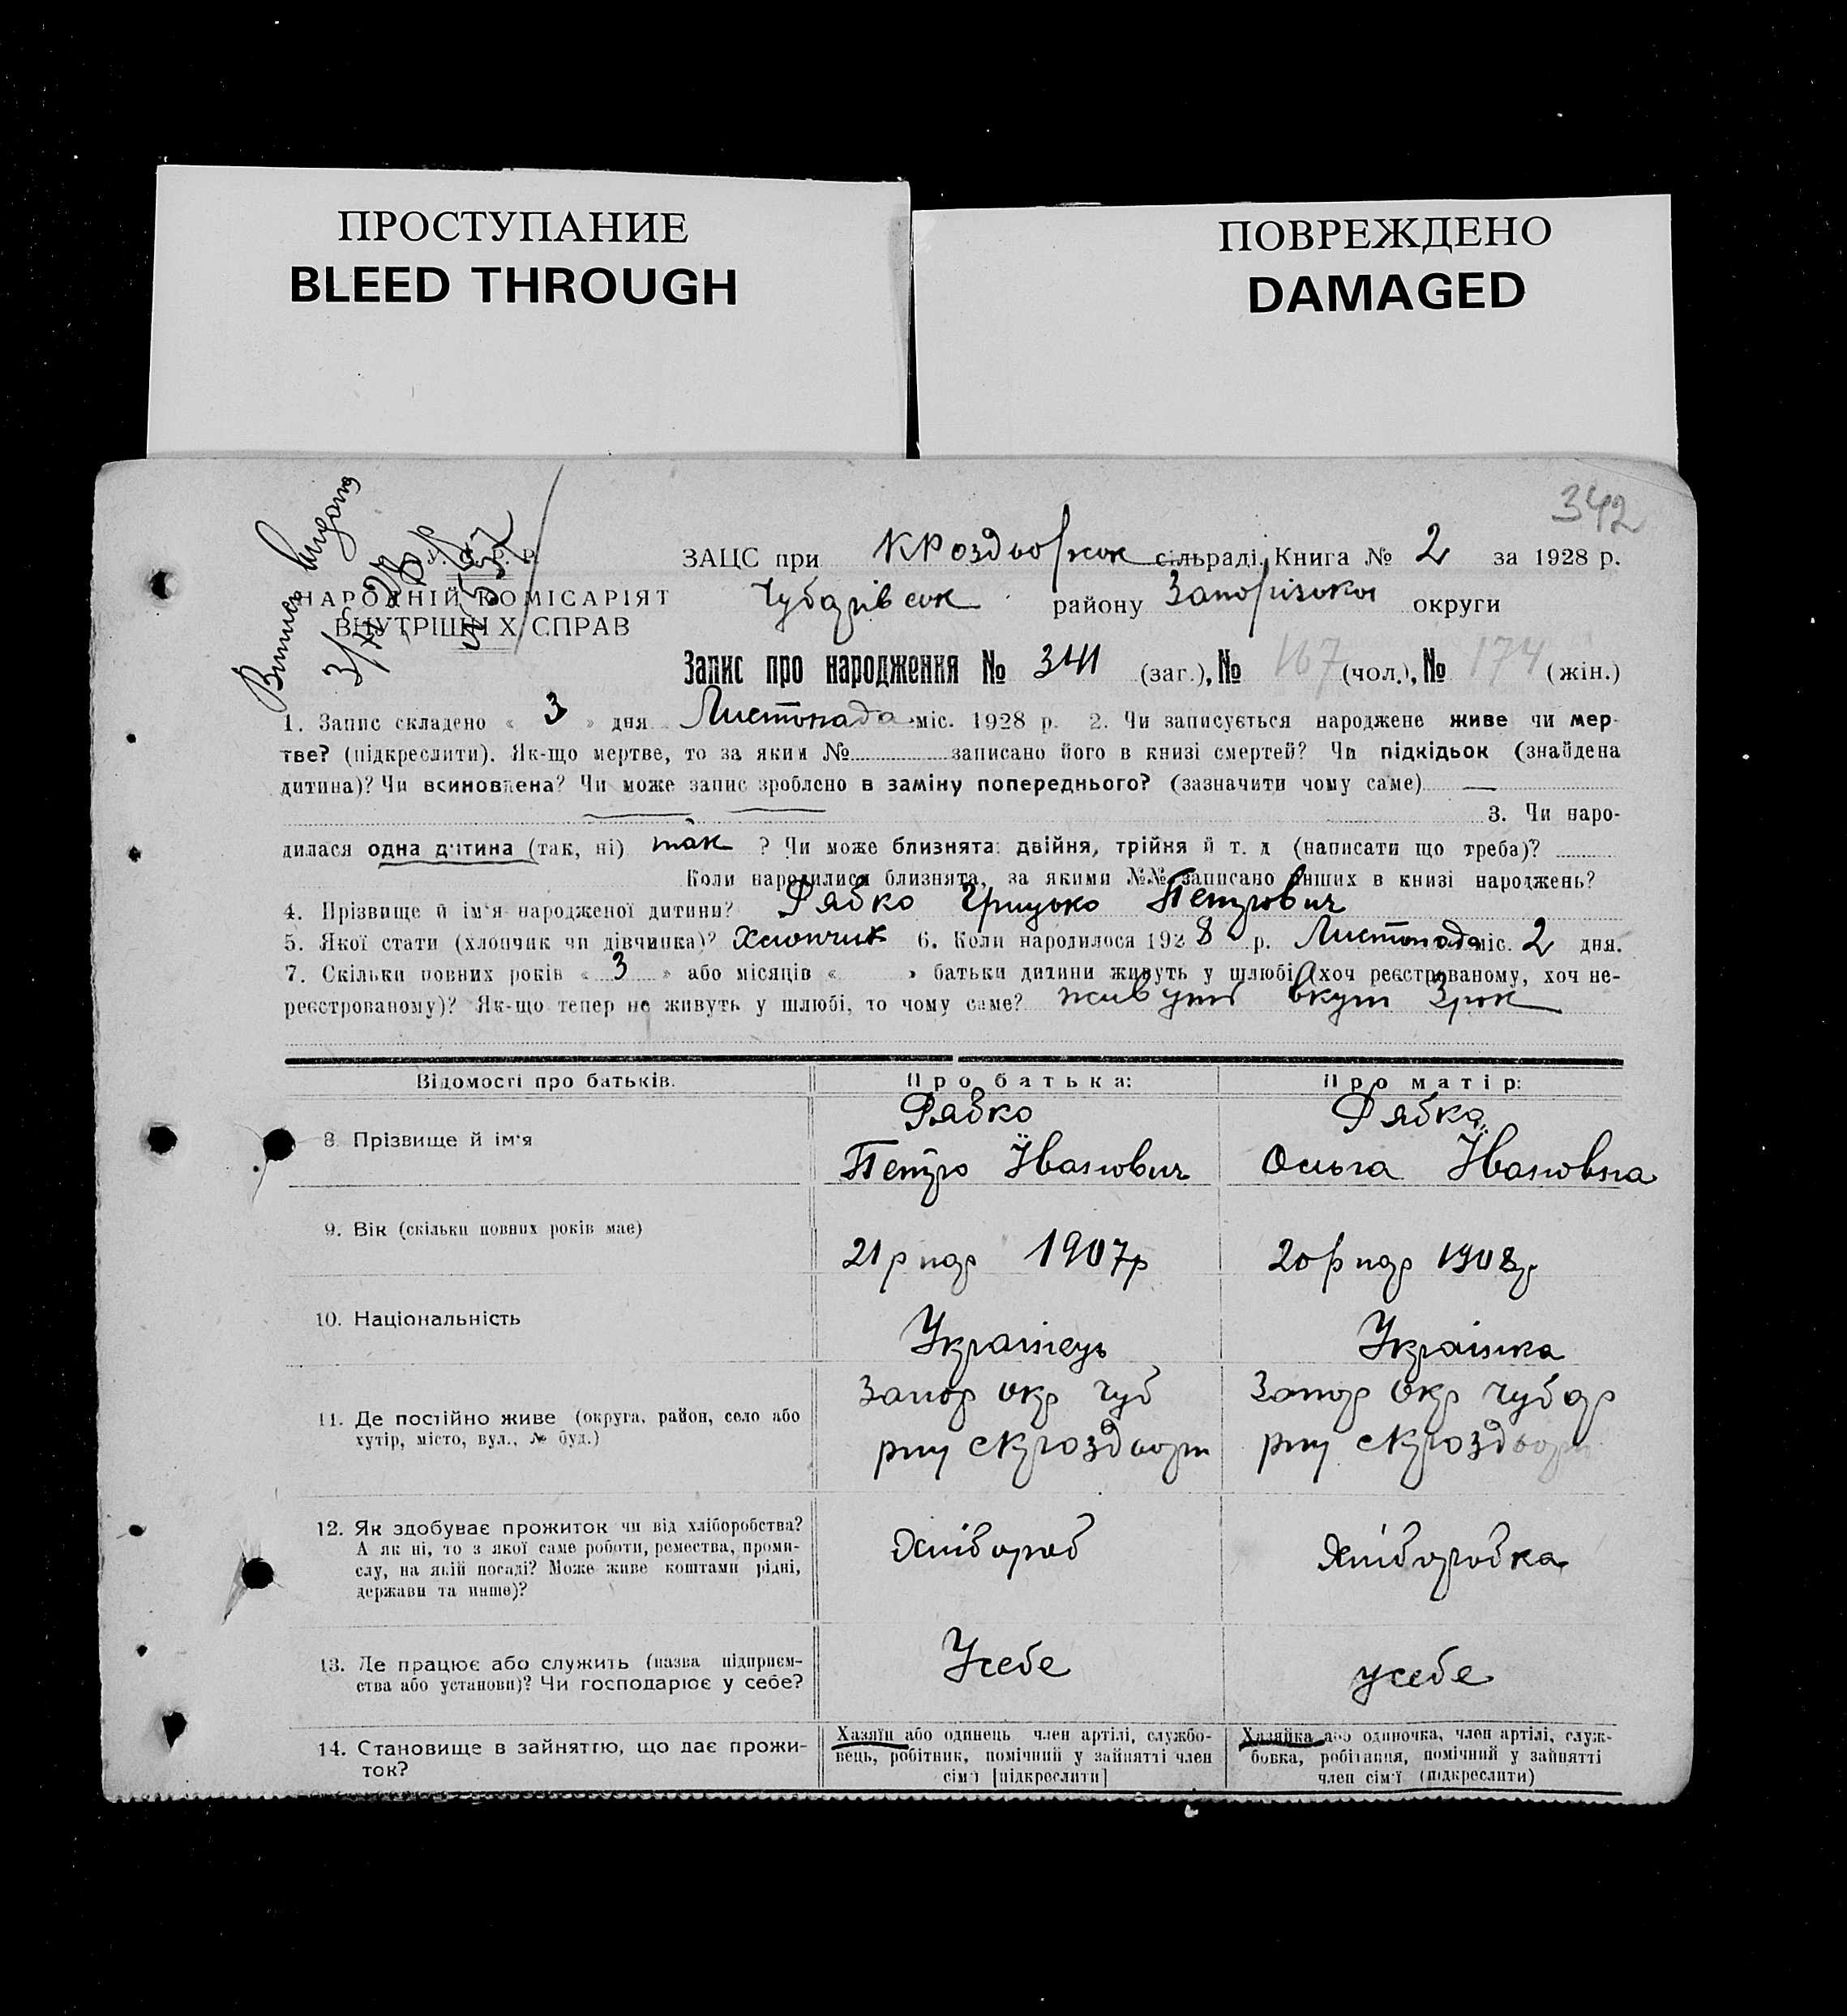 ПРОСТУПАНИЕ
BLEED THROUGH
ПОВРЕЖДЕНО
DAMAGED
342
Випись видана
У. С. Р. Р.
НАРОДНІЙ КОМІСАРІЯТ
ВНУТРІШНІХ СПРАВ
ЗАЦС при сільраді. Книга № 2 за 1928 р.
Чубарівськ району Запорізької округи
Запис про народження № 341 (заг.), № 167 (чол.), № 174 (жін.)
1. Запис складено « 3 » дня Листопада міс. 1928 р. 2. Чи записується народжене живе чи мер-
тве? (підкреслити). Як-що мертве, то за яким № записано його в книзі смертей? Чи підкідьок (знайдена
дитина)? Чи всиновлена? Чи може запис зроблено в заміну попереднього? (зазначити чому саме) —
3. Чи наро-
дилася одна дитина (так, ні) так ? Чи може близнята: двійня, трійня й т. д (написати що треба)?
Коли народилися близнята, за якими №№ записано інших в книзі народжень?
4. Прізвище й ім'я народженої дитини? Рябко Грицько Петрович
5. Якої стати (хлопчик чи дівчинка)? Хлопчик 6. Коли народилося 1928 р. Листопада міс. 2 дня.
7. Скільки повних років « 3 » або місяців « » батьки дитини живуть у шлюбі (хоч реєстрованому, хоч не-
реєстрованому)? Як-що тепер не живуть у шлюбі, то чому саме? живуть вкупі 3 рок
Відомості про батьків.
Про батька:
Про матір:
8. Прізвище й ім'я
Рябко
Петро Іванович
Рябка
Ольга Івановна
9. Вік (скільки повних років має)
21 р нар 1907р
20 р нар 1908р
10. Національність
Українець
Українка
11. Де постійно живе (округа, район, село або
хутір, місто, вул., № буд.)
Запор окр Чуб
Запор окр Чубар
12. Як здобуває прожиток чи від хліборобства?
А як ні, то з якої саме роботи, ремества, проми-
слу, на якій посаді? Може живе коштами рідні,
держави та инше)?
Хлібороб
Хліборобка
13. Де працює або служить (назва підприєм-
ства або установи)? Чи господарює у себе?
У себе
у себе
14. Становище в зайняттю, що дає прожи-
ток?
Хазяїн або одинець член артілі, службо-
вець, робітник, помічний у зайнятті член
сім'ї [підкреслити]
Хазяйка або одиночка, член артілі, служ-
бовка, робітниця, помічний у зайнятті
член сім'ї (підкреслити)